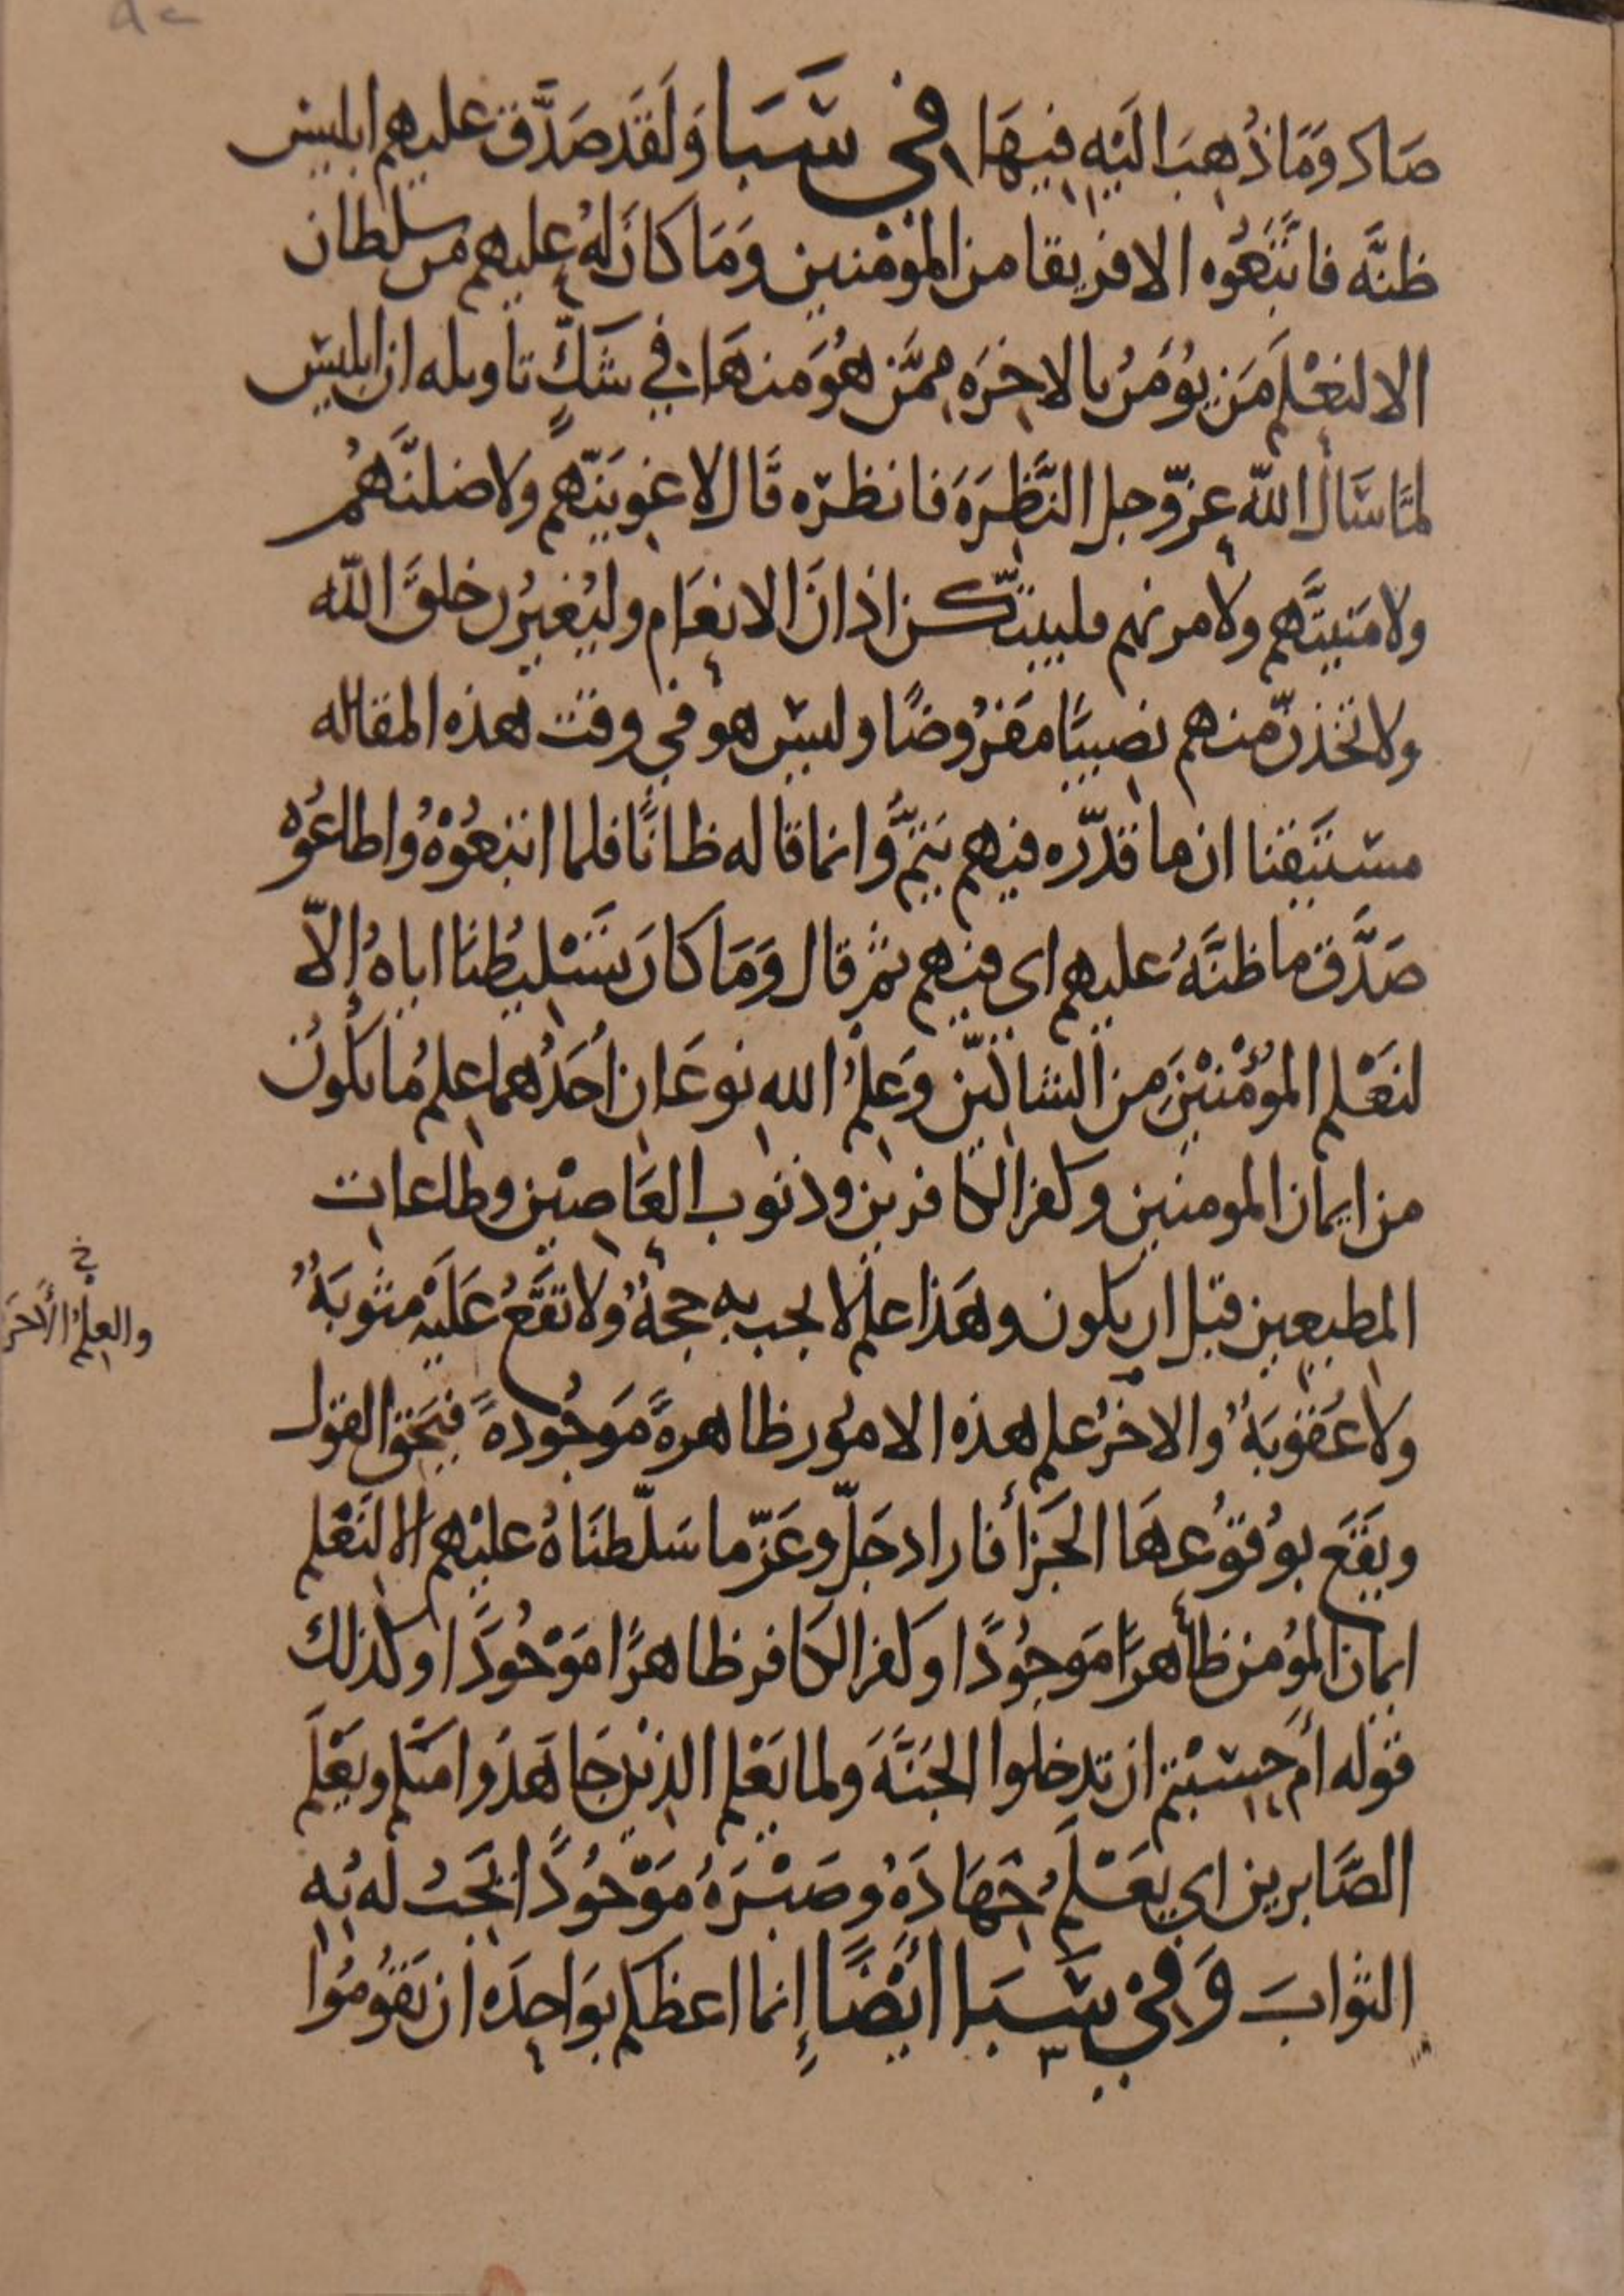 صاد وَمَا ذُهِبَ اليَهِ فيهَا في سَبَا وَلَقَد صَدَّق عليهم ابليس
ظنَّه فاتَّبَعُوه الا فريقا من المؤمنين وَمَا كانَ لهُ عليهم من سلطان
الا لنعْلم مَن يُؤمنُ بالاخرَه ممَّن هُوَ منهَا في شَكٍّ تاويله ان ابليس
لمَّا سَال الله عزّوجل النَّظِرَةَ فانظرَه قَال لاغوينّهم ولاضلنَّهُم
ولامَنينَّهم ولامرنهم فليبتّكن اذانَ الانعَام وليُغيرُن خلقَ الله
ولاتخذنّ منهم نصيبًا مفرُوضًا وليس هو في وقت هذه المقاله
مستيقنا ان ما قدّره فيهم يَتمُّ وانما قاله ظانًّا فلما اتبعُوْهُ واطاعُوه
صَدَّق ما ظنَّهُ عليهم اى فيهم ثمر قال وَمَا كانَ تَسْليطُنَا اياهُ إلّا
لنَعْلم المؤْمنيْنَ من الشاكّين وَعلمُ الله نوعَان أحَدُهما علمُ ما يكُونُ
من ايمان المومنين وكفر الكافرين وذنوب العَاصيْن وطاعات
المطيعين قبل ان يكون وهَذا علم لا يجب به حجةٌ ولا تقَعُ عَلَيْه مثوبَةٌ
ولا عُقوبَةٌ والاخرُ علم هذه الامُور ظاهرةً مَوجُودةً فيَحق القول
ويَقَعَ بوُقوُعهَا الجَزأ فاراد جَلّ وعَزّ ما سَلّطنَاهُ عليْهم الا لنَعْلم
ايمان المؤمن ظاهرًا مَوجُودًا وكفر الكافر ظاهرًا مَوْجُودًا وكذلك
قوله أم حسبْتم ان تدخلوا الجَنَّةَ ولما يَعْلم الله الذيْن جَاهَدُوا منكم ويَعْلَمَ
الصَّابرين اى يعَلَم جهَادَهُ وصَبْرَهُ مَوْجُودًا يَجبُ له به
الثوابَ وَفيْ سَبَا أيْضًا إنما اعظكم بوَاحدَه ان تقُومُوا
خ
والعلمُ الأخر